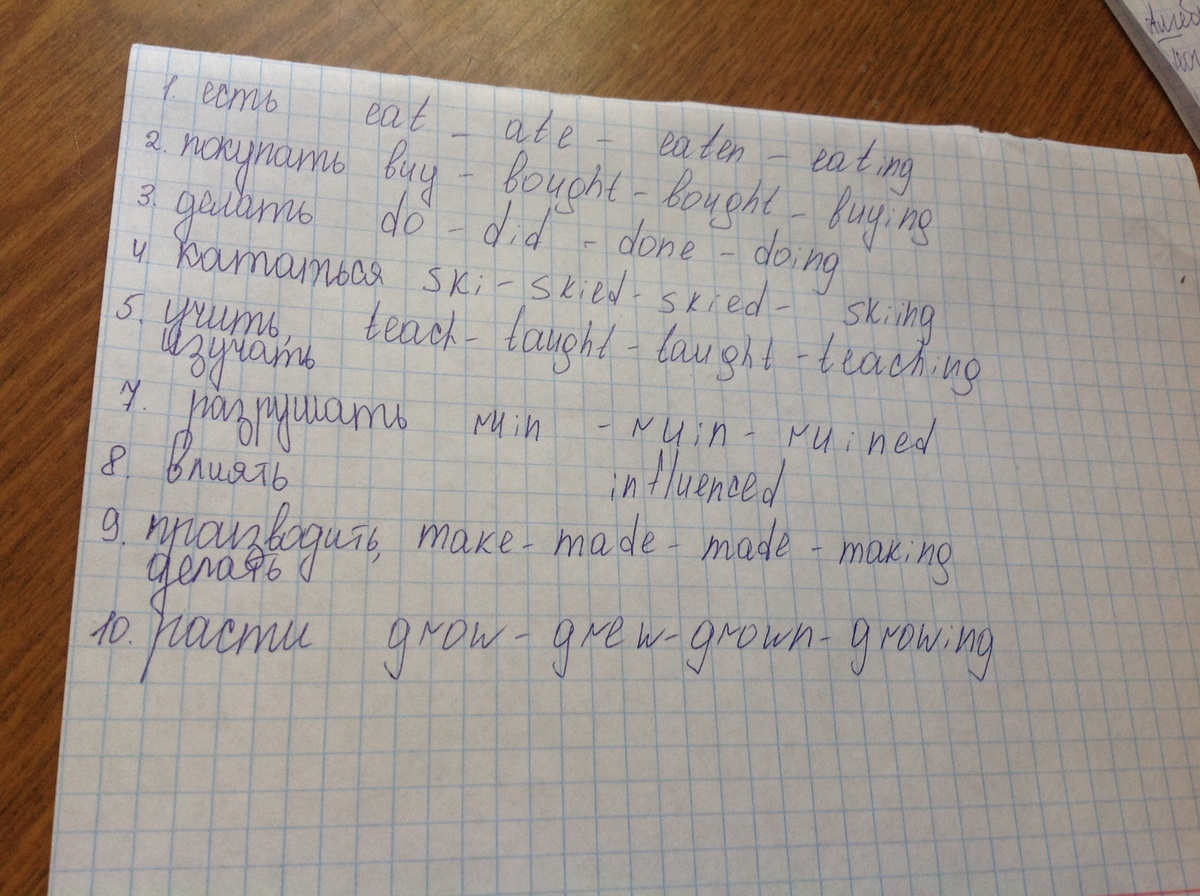 1. есть eat - ate - eaten - eating
2. покупать buy - bought - bought - buying
3. делать do - did - done - doing
4 кататься ski - skied - skied - skiing
5. учить, teach - taught - taught - teaching
изучать
7. разрушать ruin - ruin - ruined
8. влиять influenced
9. производить, make - made - made - making
делать
10. расти grow - grew - grown - growing